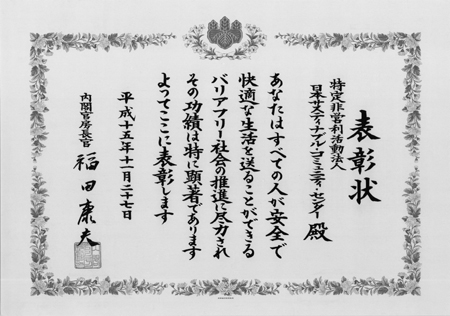 表彰状
特定非営利活動法人
日本サスティナブル・コミュニティ・センター殿
あなたはすべての人が安全で
快適な生活を送ることができる
バリアフリー社会の推進に尽力され
その功績は特に顕著であります
よってここに表彰します
平成十五年十一月二十七日
内閣官房長官
福田康夫